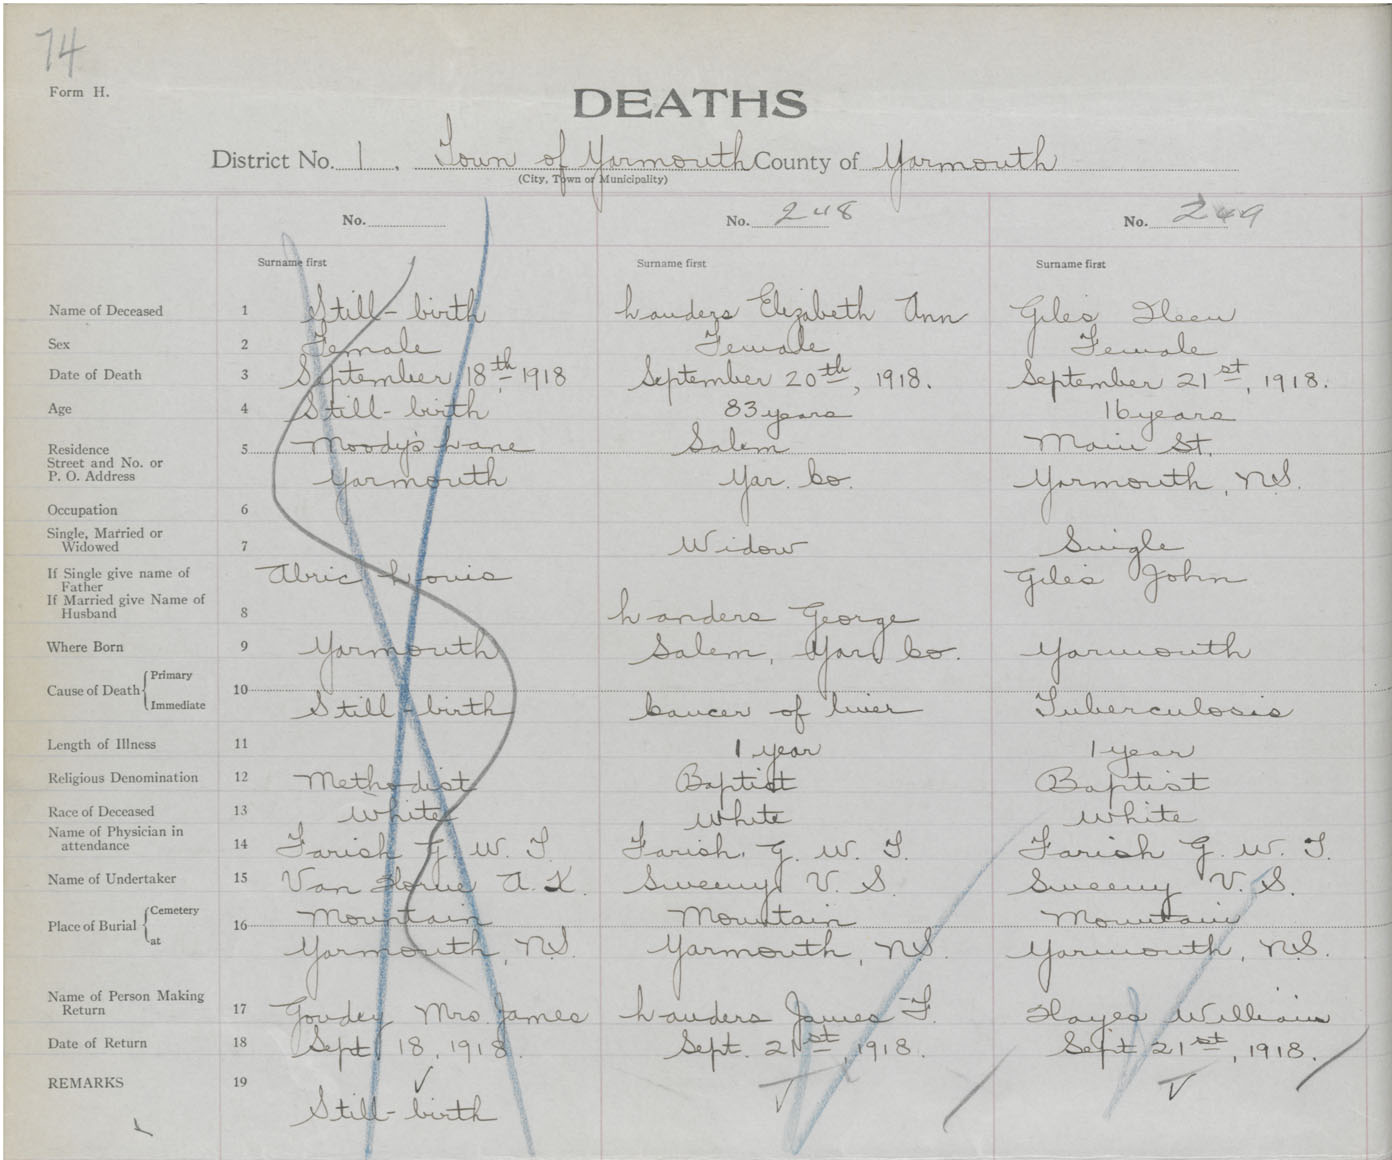 74
Form H.
DEATHS
District No. 1, Town of Yarmouth County of Yarmouth
(City, Town or Municipality)
No. No. 248 No. 249
Surname first Surname first Surname first
Name of Deceased 1 Still-birth Landers Elizabeth Ann Giles Ileen
Sex 2 Female Female Female
Date of Death 3 September 18th 1918 September 20th, 1918. September 21st, 1918.
Age 4 Still-birth 83 years 16 years
Residence 5 Moody's Lane Salem Main St.
Street and No. or
P. O. Address Yarmouth Yar. Co. Yarmouth, N.S.
Occupation 6
Single, Married or
Widowed 7 Widow Single
If Single give name of
Father Abric Louis Giles John
If Married give Name of
Husband 8 Landers George
Where Born 9 Yarmouth Salem, Yar. Co. Yarmouth
Cause of Death Primary 10
Immediate Still-birth Cancer of liver Tuberculosis
Length of Illness 11 1 year 1 year
Religious Denomination 12 Methodist Baptist Baptist
Race of Deceased 13 White White White
Name of Physician in
attendance 14 Farish G. W. T. Farish, G. W. T. Farish G. W. T.
Name of Undertaker 15 Van Horne A. K. Sweeny V. S. Sweeny V. S.
Place of Burial Cemetery 16 Mountain Mountain Mountain
at Yarmouth, N.S. Yarmouth, N.S. Yarmouth, N.S.
Name of Person Making
Return 17 Goudey Mrs. James Landers James F. Hayes William
Date of Return 18 Sept. 18, 1918. Sept. 21st, 1918. Sept 21st, 1918.
REMARKS 19
Still-birth